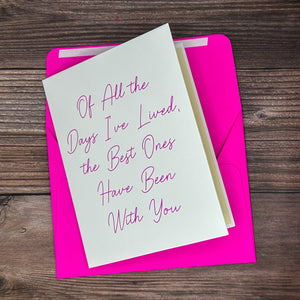 Of All the
Days I've Lived,
the Best Ones
Have Been
With You